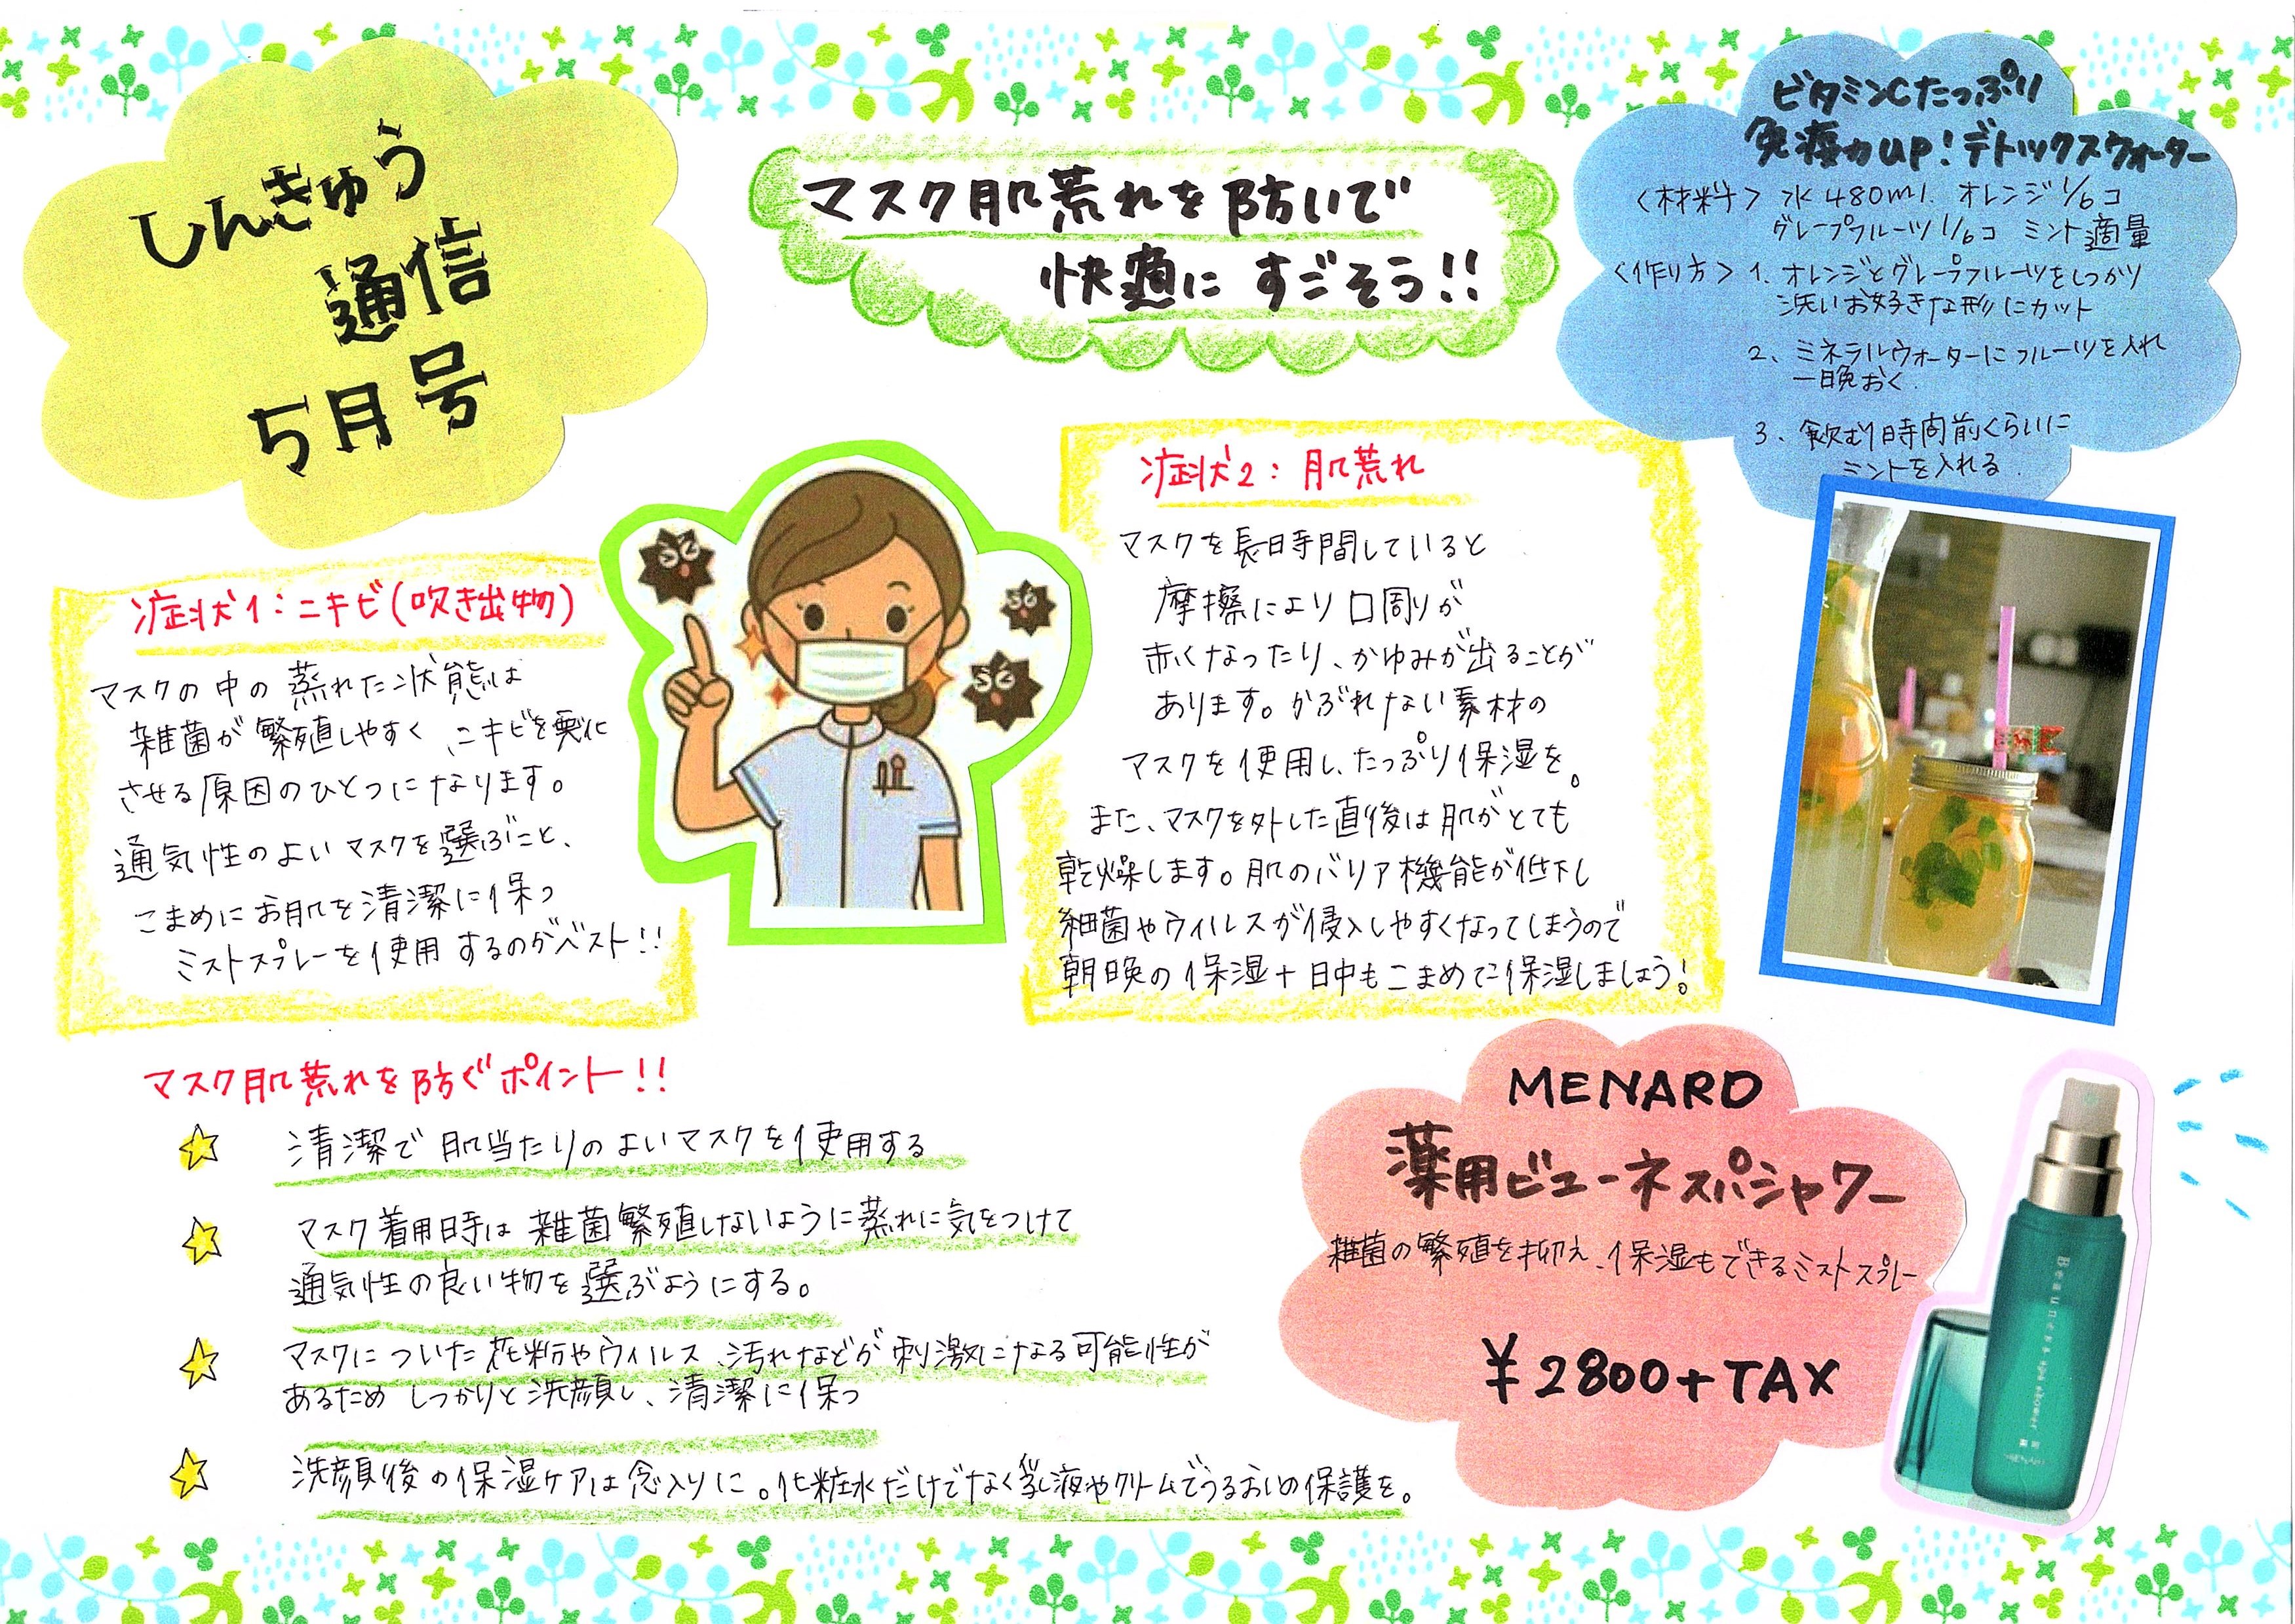 しんきゅう
通信
5月号
マスク肌荒れを防いで
快適に すごそう!!
ビタミンCたっぷり
免疫力up!デトックスウォーター
<材料> 水480ml. オレンジ1/6コ
グレープフルーツ1/6コ ミント適量
<作り方> 1. オレンジとグレープフルーツをしっかり
洗いお好きな形にカット
2、ミネラルウォーターにフルーツを入れ
一晩おく.
3、飲む1時間前くらいに
ミントを入れる.
症状1:ニキビ(吹き出物)
マスクの中の蒸れた状態は
雑菌が繁殖しやすく、ニキビを悪化
させる原因のひとつになります。
通気性のよいマスクを選ぶこと、
こまめにお肌を清潔に保つ
ミストスプレーを使用するのがベスト!!
症状2:肌荒れ
マスクを長時間していると
摩擦により口周りが
赤くなったり、かゆみが出ることが
あります。かぶれない素材の
マスクを使用し、たっぷり保湿を。
また、マスクを外した直後は肌がとても
乾燥します。肌のバリア機能が低下し
細菌やウィルスが侵入しやすくなってしまうので
朝晩の保湿+日中もこまめに保湿しましょう!
マスク肌荒れを防ぐポイント!!
清潔で肌当たりのよいマスクを使用する
マスク着用時は雑菌繁殖しないように蒸れに気をつけて
通気性の良い物を選ぶようにする。
マスクについた花粉やウィルス、汚れなどが刺激になる可能性が
あるためしっかりと洗顔し、清潔に保つ
洗顔後の保湿ケアは念入りに。化粧水だけでなく乳液やクリームでうるおいの保護を。
MENARD
薬用ビューネスパシャワー
雑菌の繁殖を抑え、保湿もできるミストスプレー
¥2800+TAX
Beauness spa shower